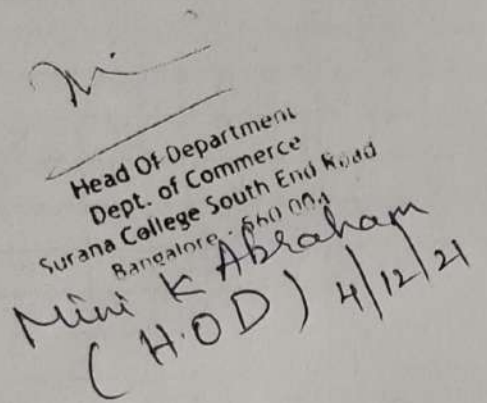 Head Of Department
Dept. of Commerce
Surana College South End Road
Bangalore - 560 004
Mini K Abraham
(H.O.D) 4/12/21